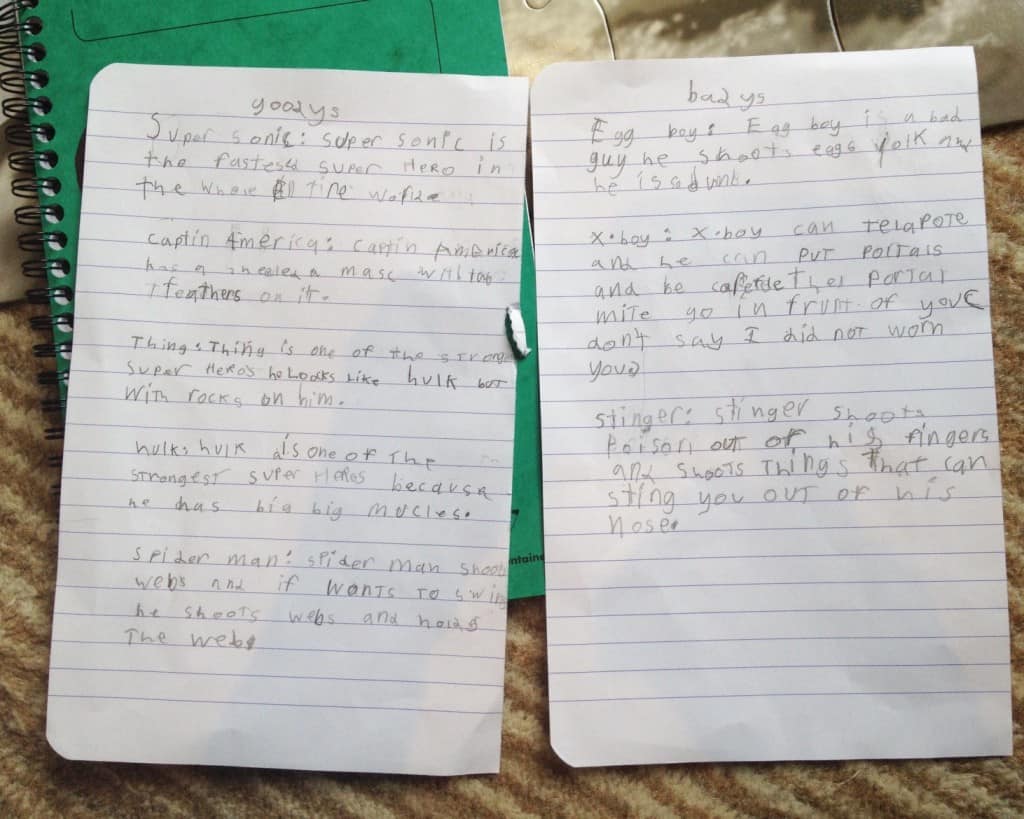 goodys
Super sonic: super sonic is
the fastesd super Hero in
the whole tire
Captin America: Captin America
has a masc
feathers on it.
Thing: Thing is one of the strong
super Hero's he Looks Like hulk but
with rocks on him.
hulk: hulk is one of The
strongest super Heros because
he has big big mucles.
Spider man: spider man shoot
webs and if wants to swing
he shoots webs and holds
The webs
ntaine
badys
Egg boy: Egg boy is a bad
guy he shoots eggs yolk and
he is
X.boy: X.boy can telapote
and he can put portals
and be the portal
mite go in frunt of you
don't say I did not worn
you
stinger: stinger shoots
Poison out of his fingers
and shoots Things That can
sting you out of his
nose.